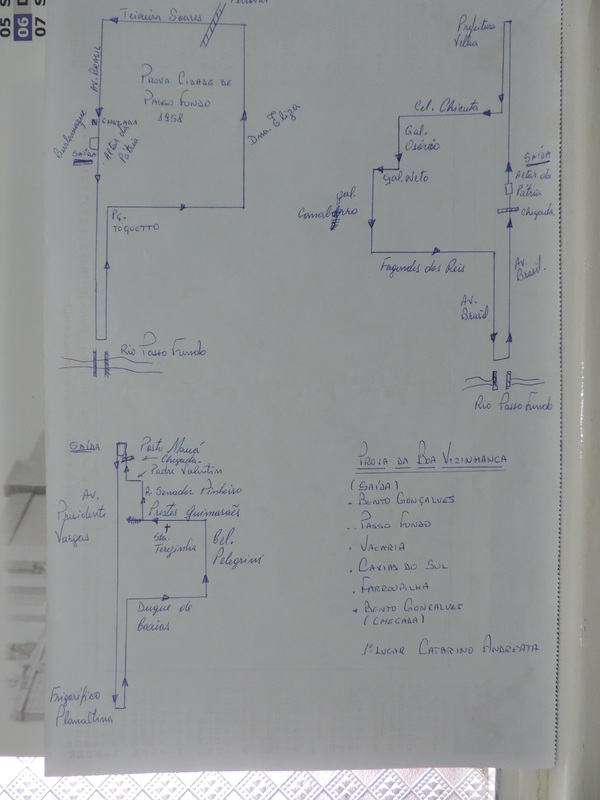 05 S
06 D
07 S
Teixeira Soares
AV. BRASIL
PROVA CIDADE DE
PASSO FUNDO
1958
Dna. Eliza
CHEGADA
Altar da
Pátria
SAÍDA
Pç.
TOQUETTO
Rio Passo Fundo
Prefeitura
Velha
Cel. Chicuta
Gal.
Osório
Gal. Neto
Gal.
SAÍDA
Altar da
Pátria
Chegada
Av.
Brasil
Fagundes dos Reis
Av.
Brasil
Rio Passo Fundo
SAÍDA
Posto Mauá
Chegada
Padre Valentin
R. Senador Pinheiro
Prestes Guimarães
Sta.
Terezinha
Bel.
Pelegrini
Av.
Presidente
Vargas
Duque de
Caxias
Frigorífico
Planaltina
PROVA DA BOA VIZINHANÇA
(SAÍDA)
- BENTO GONÇALVES
- PASSO FUNDO
. VACARIA
. CAXIAS DO SUL
. FARROUPILHA
- BENTO GONÇALVES
(CHEGADA)
1º LUGAR CATARINO ANDREATTA